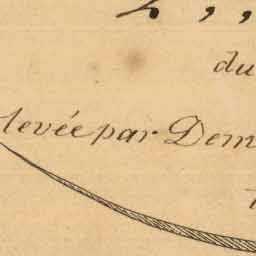 du
levée par Dem